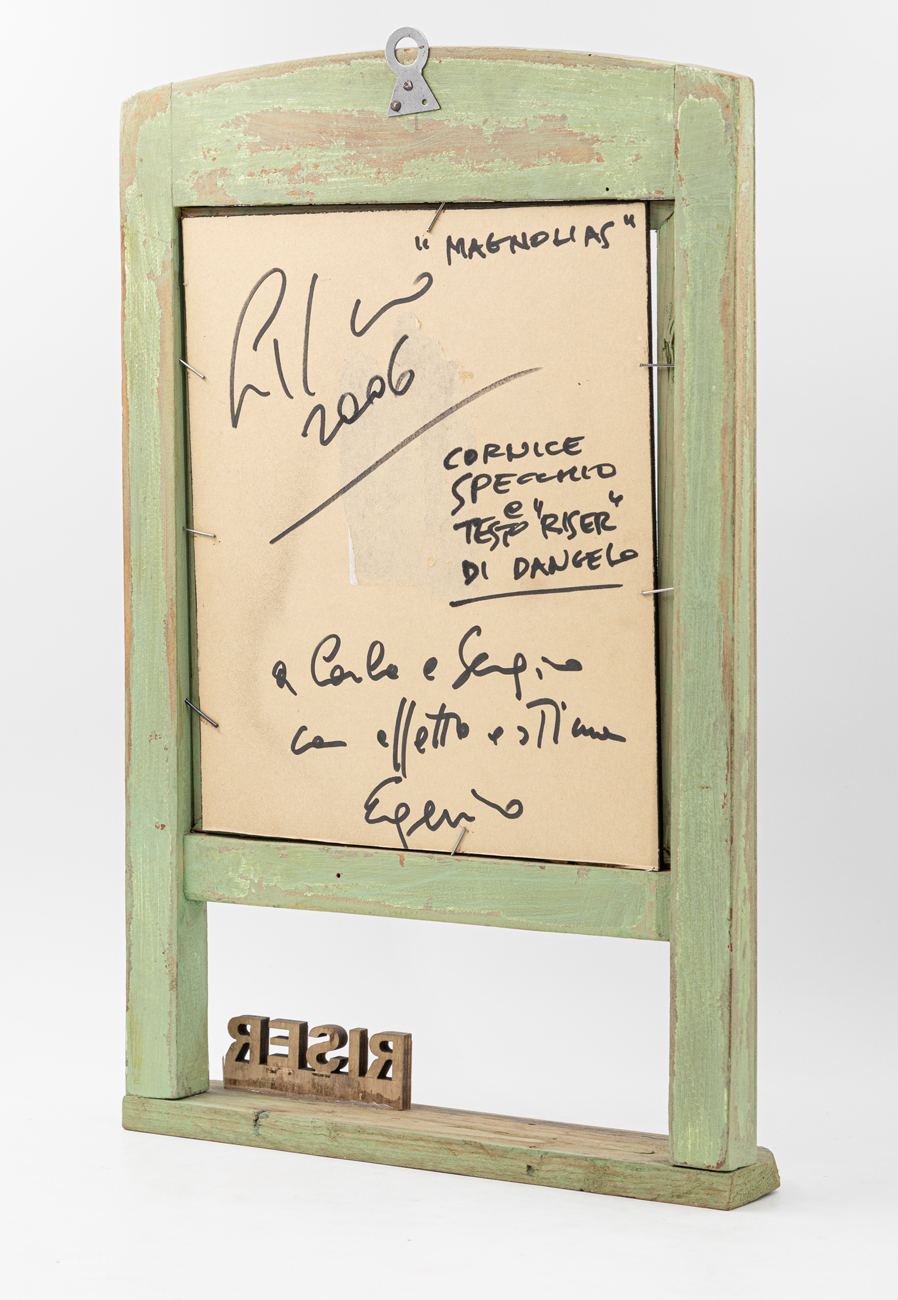 "MAGNOLIAS"
2006
CORNICE
SPECCHIO
e
TESTO "RISER"
DI DANGELO
a Carla e Sergio
con affetto e stima
Eugenio
RISER